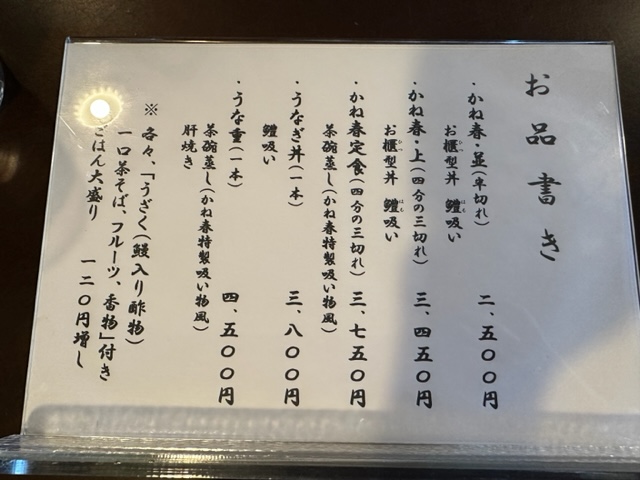 お品書き
・かね春・並(半切れ) 二、五〇〇円
お櫃型丼 鱧吸い
・かね春・上(四分の三切れ) 三、四五〇円
お櫃型丼 鱧吸い
・かね春定食(四分の三切れ) 三、七五〇円
茶碗蒸し(かね春特製吸い物風)
・うなぎ丼(一本) 三、八〇〇円
鱧吸い
・うな重(一本) 四、五〇〇円
茶碗蒸し(かね春特製吸い物風)
肝焼き
※ 各々、「うざく(鰻入り酢物)
一口茶そば、フルーツ、香物」付き
ごはん大盛り 一二〇円増し